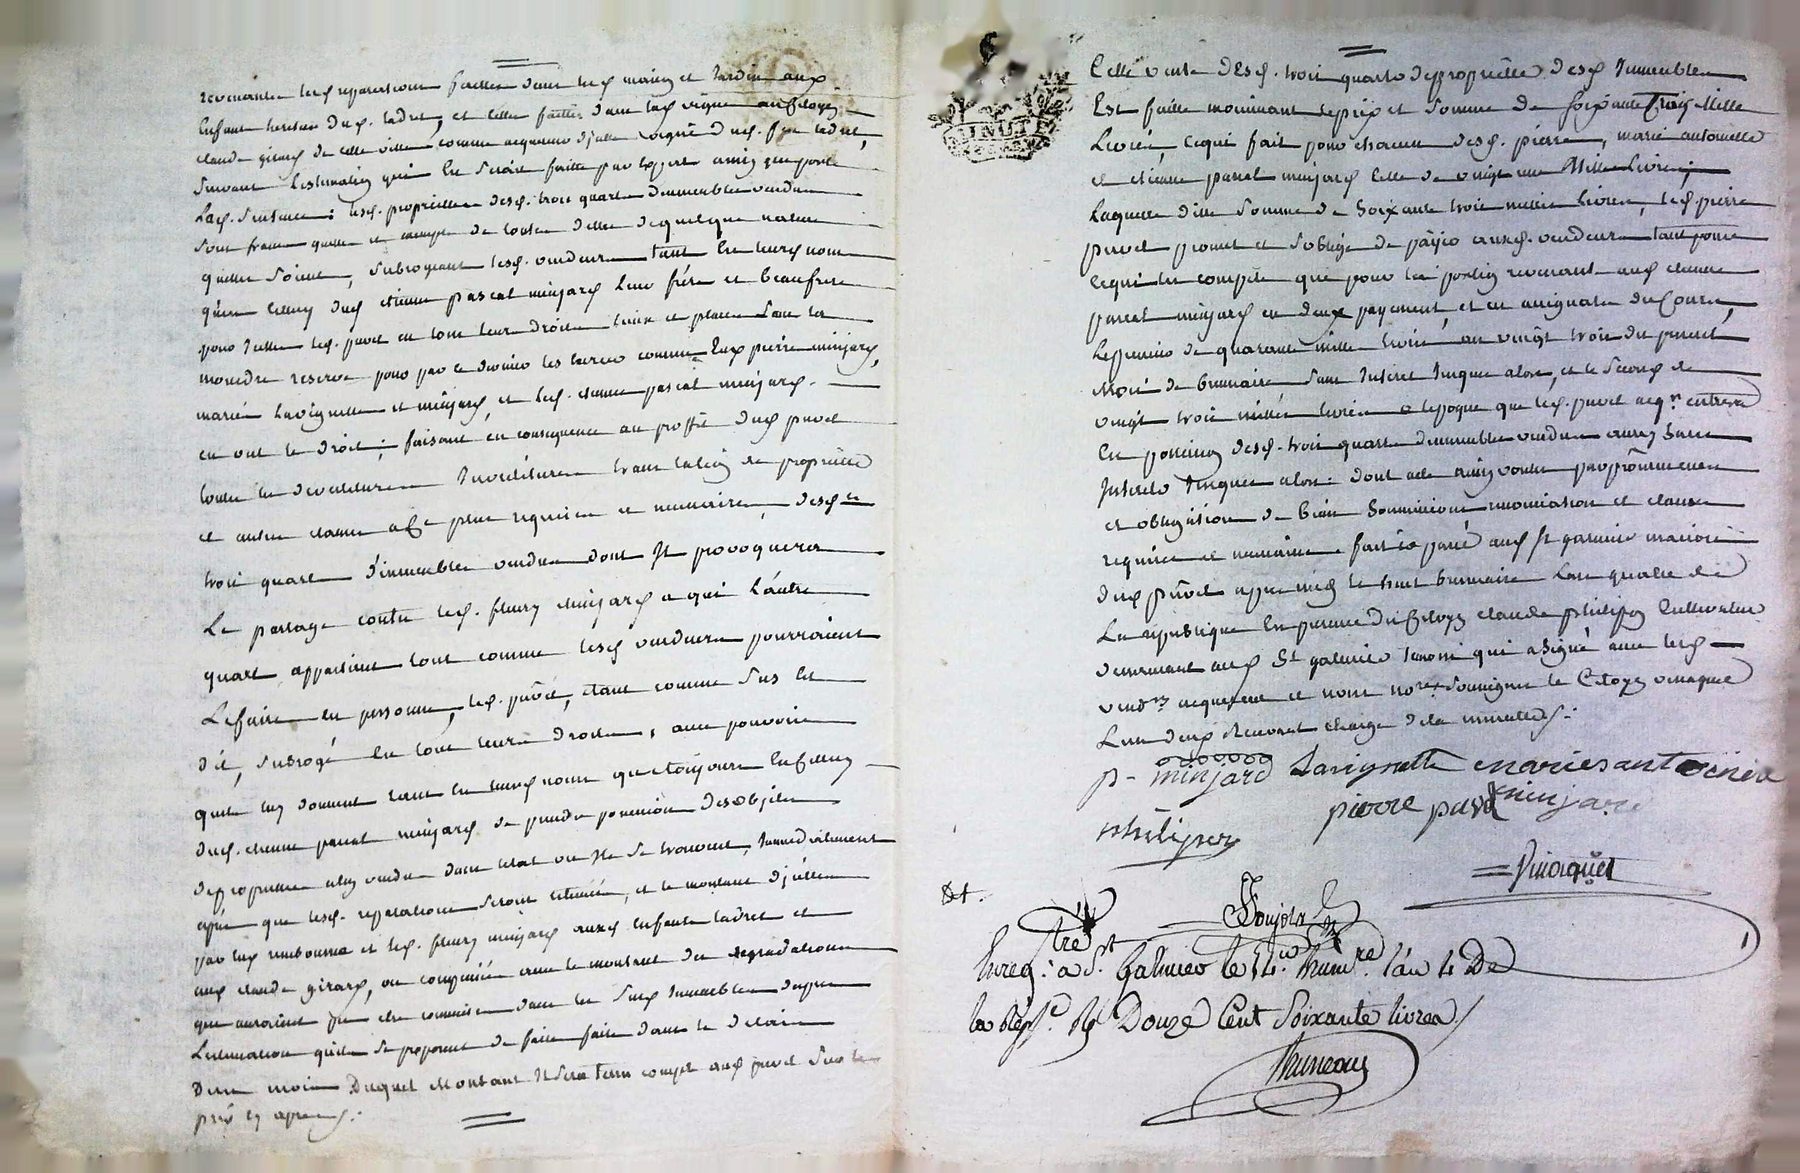 revenantes lesd reparations faittes dans lesd maison et jardin aux
enfant heritier dud. ladret, et celles faittes dans lad vigne au Citoyen
claude girard de cette ville, comme acquereur d'jcelle vigne dud. ladret,
suivant l'estimation qui en seroit faitte par expert ainsy que porte
lad. sentence: lesd. proprietés desd. trois quart d'immeubles vendus
sont francs quitte et exempts de toutes dettes de quelque nature
qu'elles soient, subrogeant lesd. vendeurs tant en leurs nom
qu'en celluy dud etienne pascal minjard leur frère et beaufrere
pour jcelles led. pavet en tous leurs droits lieux et places sans la
moindre reserve pour par ce dernier les exercer comme Eux pierre minjard,
mariés Lavignette et minjard, et led. etienne pascal minjard.
en ont le droit; faisant en consequence au proffit dud pavet
toutes les devetitures Investitures translation de propriété
et autres clauses a ce plus requises et necessaires, desd
trois quart d'immeubles vendus dont Jl provoquera
Le partage contre led. fleury Minjard a qui L'autre
quart appartient tout comme lesd vendeurs pourroient
Le faire en personne, led. pavet, étant comme sus est
dit, subrogé en tous leurs droits, avec pouvoir
qu'ils luy donnent tant en leurs noms que toujours en celluy
dud. etienne pascal minjard de prendre possession des objets
de proprieté a luy vendus dans l'etat ou Jls se trouvent, Immediatement
après que lesd. reparations seront estimées, et le montant d'jcelles
par luy remboursé et led. fleury minjard auxd enfants ladret et
aud claude girard, ou compensée avec le montant des degradations
que auroient pu etre commises dans les susd Immeubles d'apres
L'estimation qu'ils se proposent de faire faire dans le delais
d'un mois Duquel Montant Jl sera tenu compte aud pavet sur le
prix cy apres:
Cette vente desd. trois quarts de proprieté desd Immeubles
Est faitte moiennant le prix et somme de Soixante Trois Mille
Livres, ce qui fait pour chacun desd. pierre, marie antoinette
et etienne pascal minjard celle de vingt une Mille Livres;
Laquelle ditte somme de soixante trois mille Livres, led. pierre
pavet promet et s'oblige de payer auxd. vendeurs tant pour
ce qui les compéte que pour la portion revenant aud etienne
pascal minjard en deux payements, et en assignats du Cours,
Le premier de quarante mille livres, au vingt trois du present
Mois de brumaire sans Interet jusques alors, et le second de
vingt trois mille livres a lepoque que led. pavet acqr. entrera
En possession desd. trois quarts d'immeubles vendus aussy sans
Interets jusques alors. dont acte ainsy voulu par promesses
et obligation de biens soumissions renonciations et clauses
requises et necessaires fait et passé aud St galmier maison
dud pavet apres midy le huit brumaire L'an quatre de
La republique En presence du Citoyen claude philipon Cultivateur
demeurant aud St galmier temoin qui a signé avec lesd
vendrs acquereur et nous nores soussignés le Citoyen vinaquet
L'un d'eux Restant chargé de la minutte.
p. minjard Lavignette marie antoinette
minjard
pierre pavet
philipon
Vinaquet
&t.
Enregtré a St. Galmier le 14. brumre. l'an 4 De
la Rep. Rs Douze Cent Soixante livres /
Bruneau